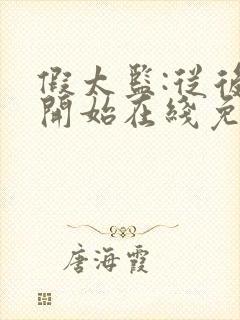 假太監:從後
開始在綫免
唐海霞